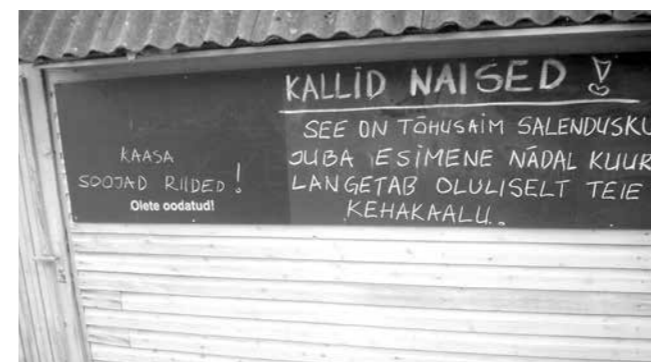 KAASA
SOOJAD RIIDED!
Olete oodatud!
KALLID NAISED!
SEE ON TÕHUSAIM SALENDUSKU
JUBA ESIMENE NÄDAL KUUR
LANGETAB OLULISELT TEIE
KEHAKAALU.